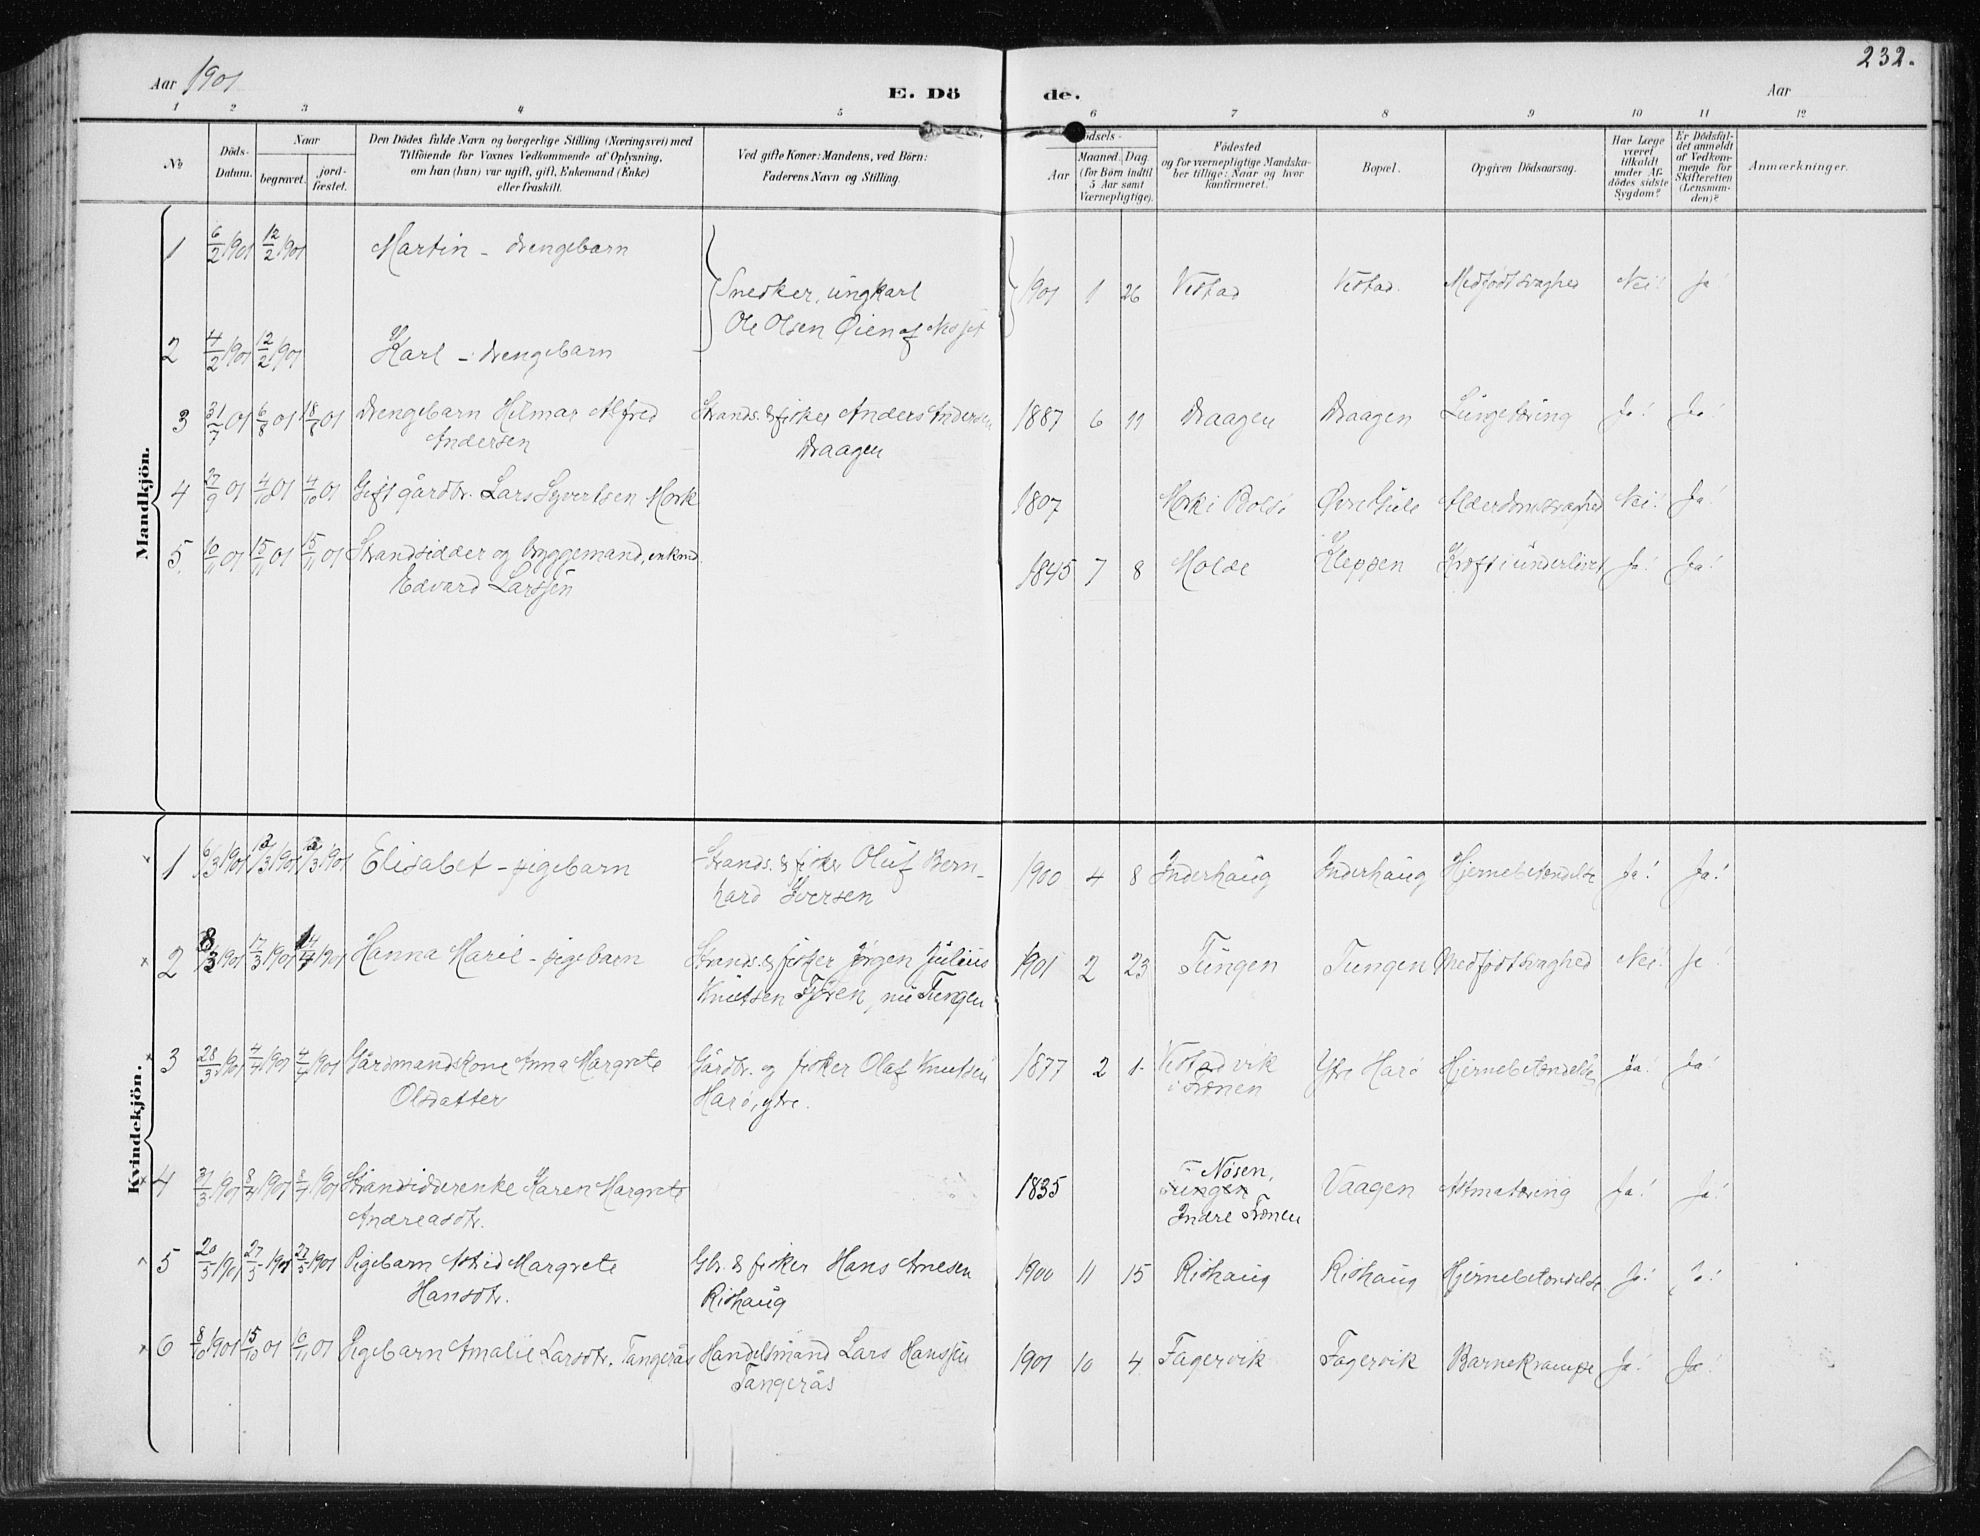 232.
Aar 1901
E. Dö de.
Aar
1 2 3 4 5 6 7 8 9 10 11 12
No
Döds-Datum.
Naar
begravet.
jord-fæstet.
Den Dödes fulde Navn og borgerlige Stilling (Næringsvei) med
Tilföiende for Voxnes Vedkommende af Oplysning,
om han (hun) var ugift, gift, Enkemand (Enke)
eller fraskilt.
Ved gifte Koner: Mandens, ved Börn:
Faderens Navn og Stilling.
Födsels-
Aar
Maaned. Dag.
(for Börn indtil
5 Aar samt
Værnepligtige).
Födested
og for værnepligtige Mandska-
ber tillige: Naar og hvor
konfirmeret.
Bopæl.
Opgiven Dödsaarsag.
Har Læge
været
tilkaldt
under Af-
dödes sidste
Sygdom?
Er Dödsfal-
det anmeldt
af Vedkom-
mende for
Skifteretten
(Lensman-
den)?
Anmærkninger.
Mandkjön.
1 6/2 1901 12/2 1901 Martin - drengebarn
Snedker, ungkarl
Ole Olsen Øien af Nesset
1901 1 26 Vestad Vestad. Medfødt svaghed Nei! Ja
2 4/2 1901 12/2 1901 Karl - drengebarn
3 31/7 01 6/8 01 18/8 01 Drengebarn Hilmar Alfred Strands. & fisker Anders Andersen 1887 6 11 Draagen Draagen Lungetæring Ja! Ja!
Andersen Draagen
4 27/9 01 4/10 01 4/10 01 Gift gårdbr. Lars Syvertsen Mork 1807 Mork i Bolsø Øvre Hjelle Alderdomssvaghed Nei! Ja!
5. 10/11 01 15/11 01 15/11 01 Strandsidder og bryggemand, enkmd. 1845 7 8 Molde Kleppen Kræft i underlivet Ja! Ja!
Edvard Larssen
Kvindekjön.
1 6/3 1901 13/3 1901 13/3 1901 Elisabet - pigebarn Strands. & fisker Oluf Bern- 1900 4 8 Inderhaug Inderhaug Hjernebetændelse Ja! Ja!
hard Iversen
2 8/3 1901 17/3 1901 14/4 1901 Hanna Marie - pigebarn Strands. & fisker Jørgen Julius 1901 2 23 Tungen Tungen Medfødt svaghed Nei! Ja!
Knutsen Tjøren, nu Tungen
3 28/3 1901 4/4 1901 4/4 1901 Gårdmandskone Anna Margrete Gårdbr. og fisker Olaf Knutsen 1877 2 1 Vestadvik Ytre Harø Hjernebetændelse Ja! Ja!
Olsdatter Harø, ytre. i Frænen
4 31/3 1901 8/4 1901 8/4 1901 Strandsidderenke Karen Margrete 1835 Tungen Nøsen, Vaagen Astmatæring Ja! Ja!
Andreasdtr. Indre Frænen
5 20/5 1901 27/5 1901 27/5 1901 Pigebarn Astrid Margrete Gbr. & fisker Hans Arnesen 1900 11 15 Rishaug Rishaug Hjernebetændelse Ja! Ja!
Hansdtr. Rishaug
6 8/10 1901 15/10 01 10/11 01 Pigebarn Amalie Larsdtr. Tangerås Handelsmand Lars Hanssen 1901 10 4 Fagervik Fagervik Barnekrampe Ja! Ja!
Tangerås